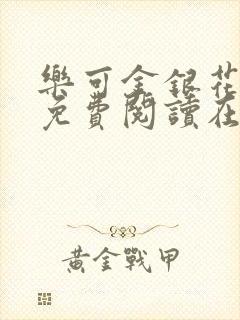 樂可金銀花
免費閱讀在
黃金戰甲